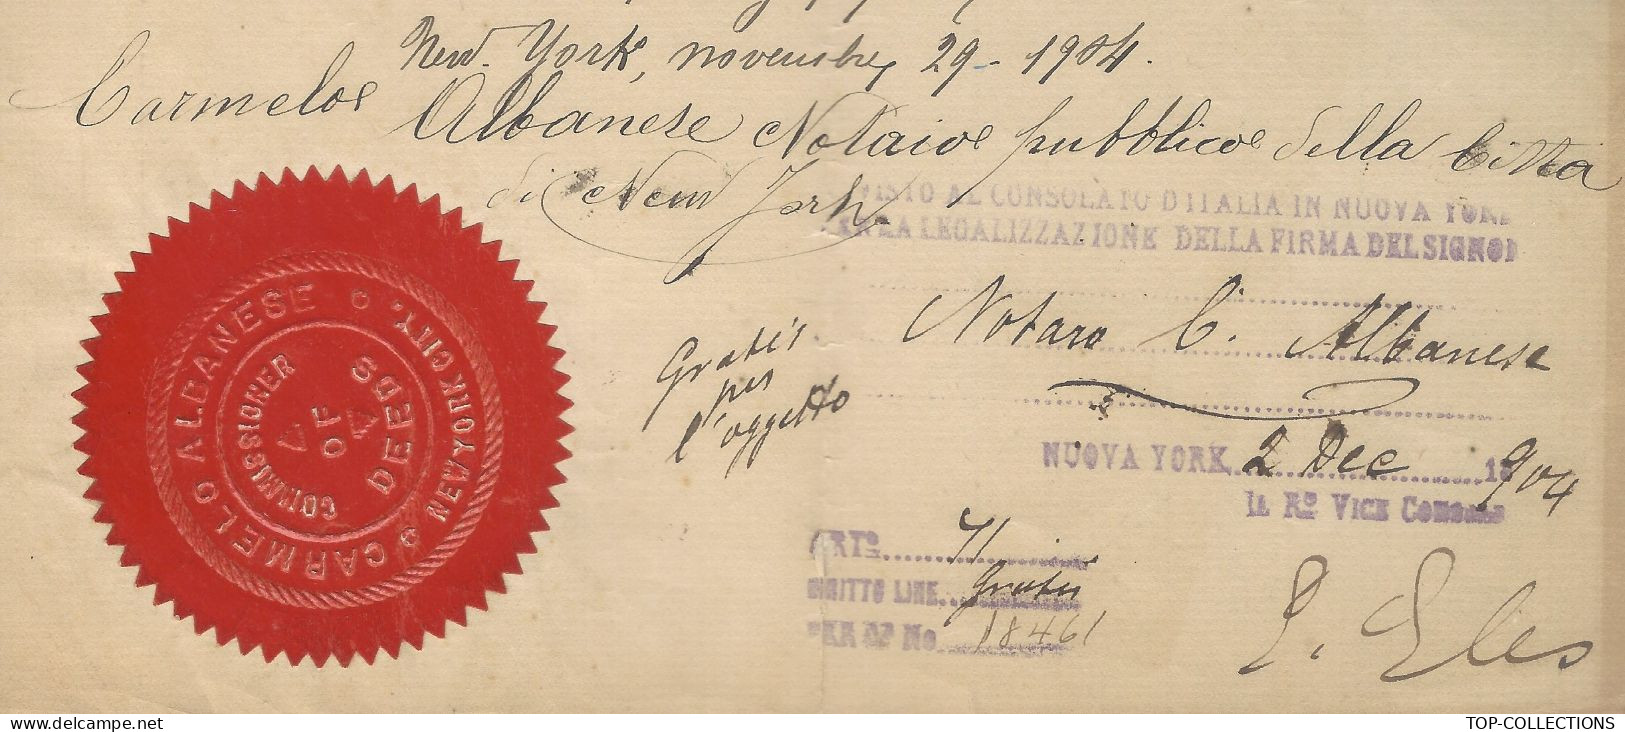 New York, novembre 29 - 1904.
Carmelo Albanese Notaio pubblico della Città
di New York
VISTO AL CONSOLATO D'ITALIA IN NUOVA YORK
PER LA LEGALIZZAZIONE DELLA FIRMA DEL SIGNOR
Notaro C. Albanese
Gratis
per
l'oggetto
NUOVA YORK, 2 Dec 1904
IL Ro VICE CONSOLE
ARTo. 71
DIRITTO LIRE. Gratis
No 18461
CARMELO ALBANESE
NEW YORK CITY.
COMMISSIONER
OF
DEEDS
TOP-COLLECTIONS